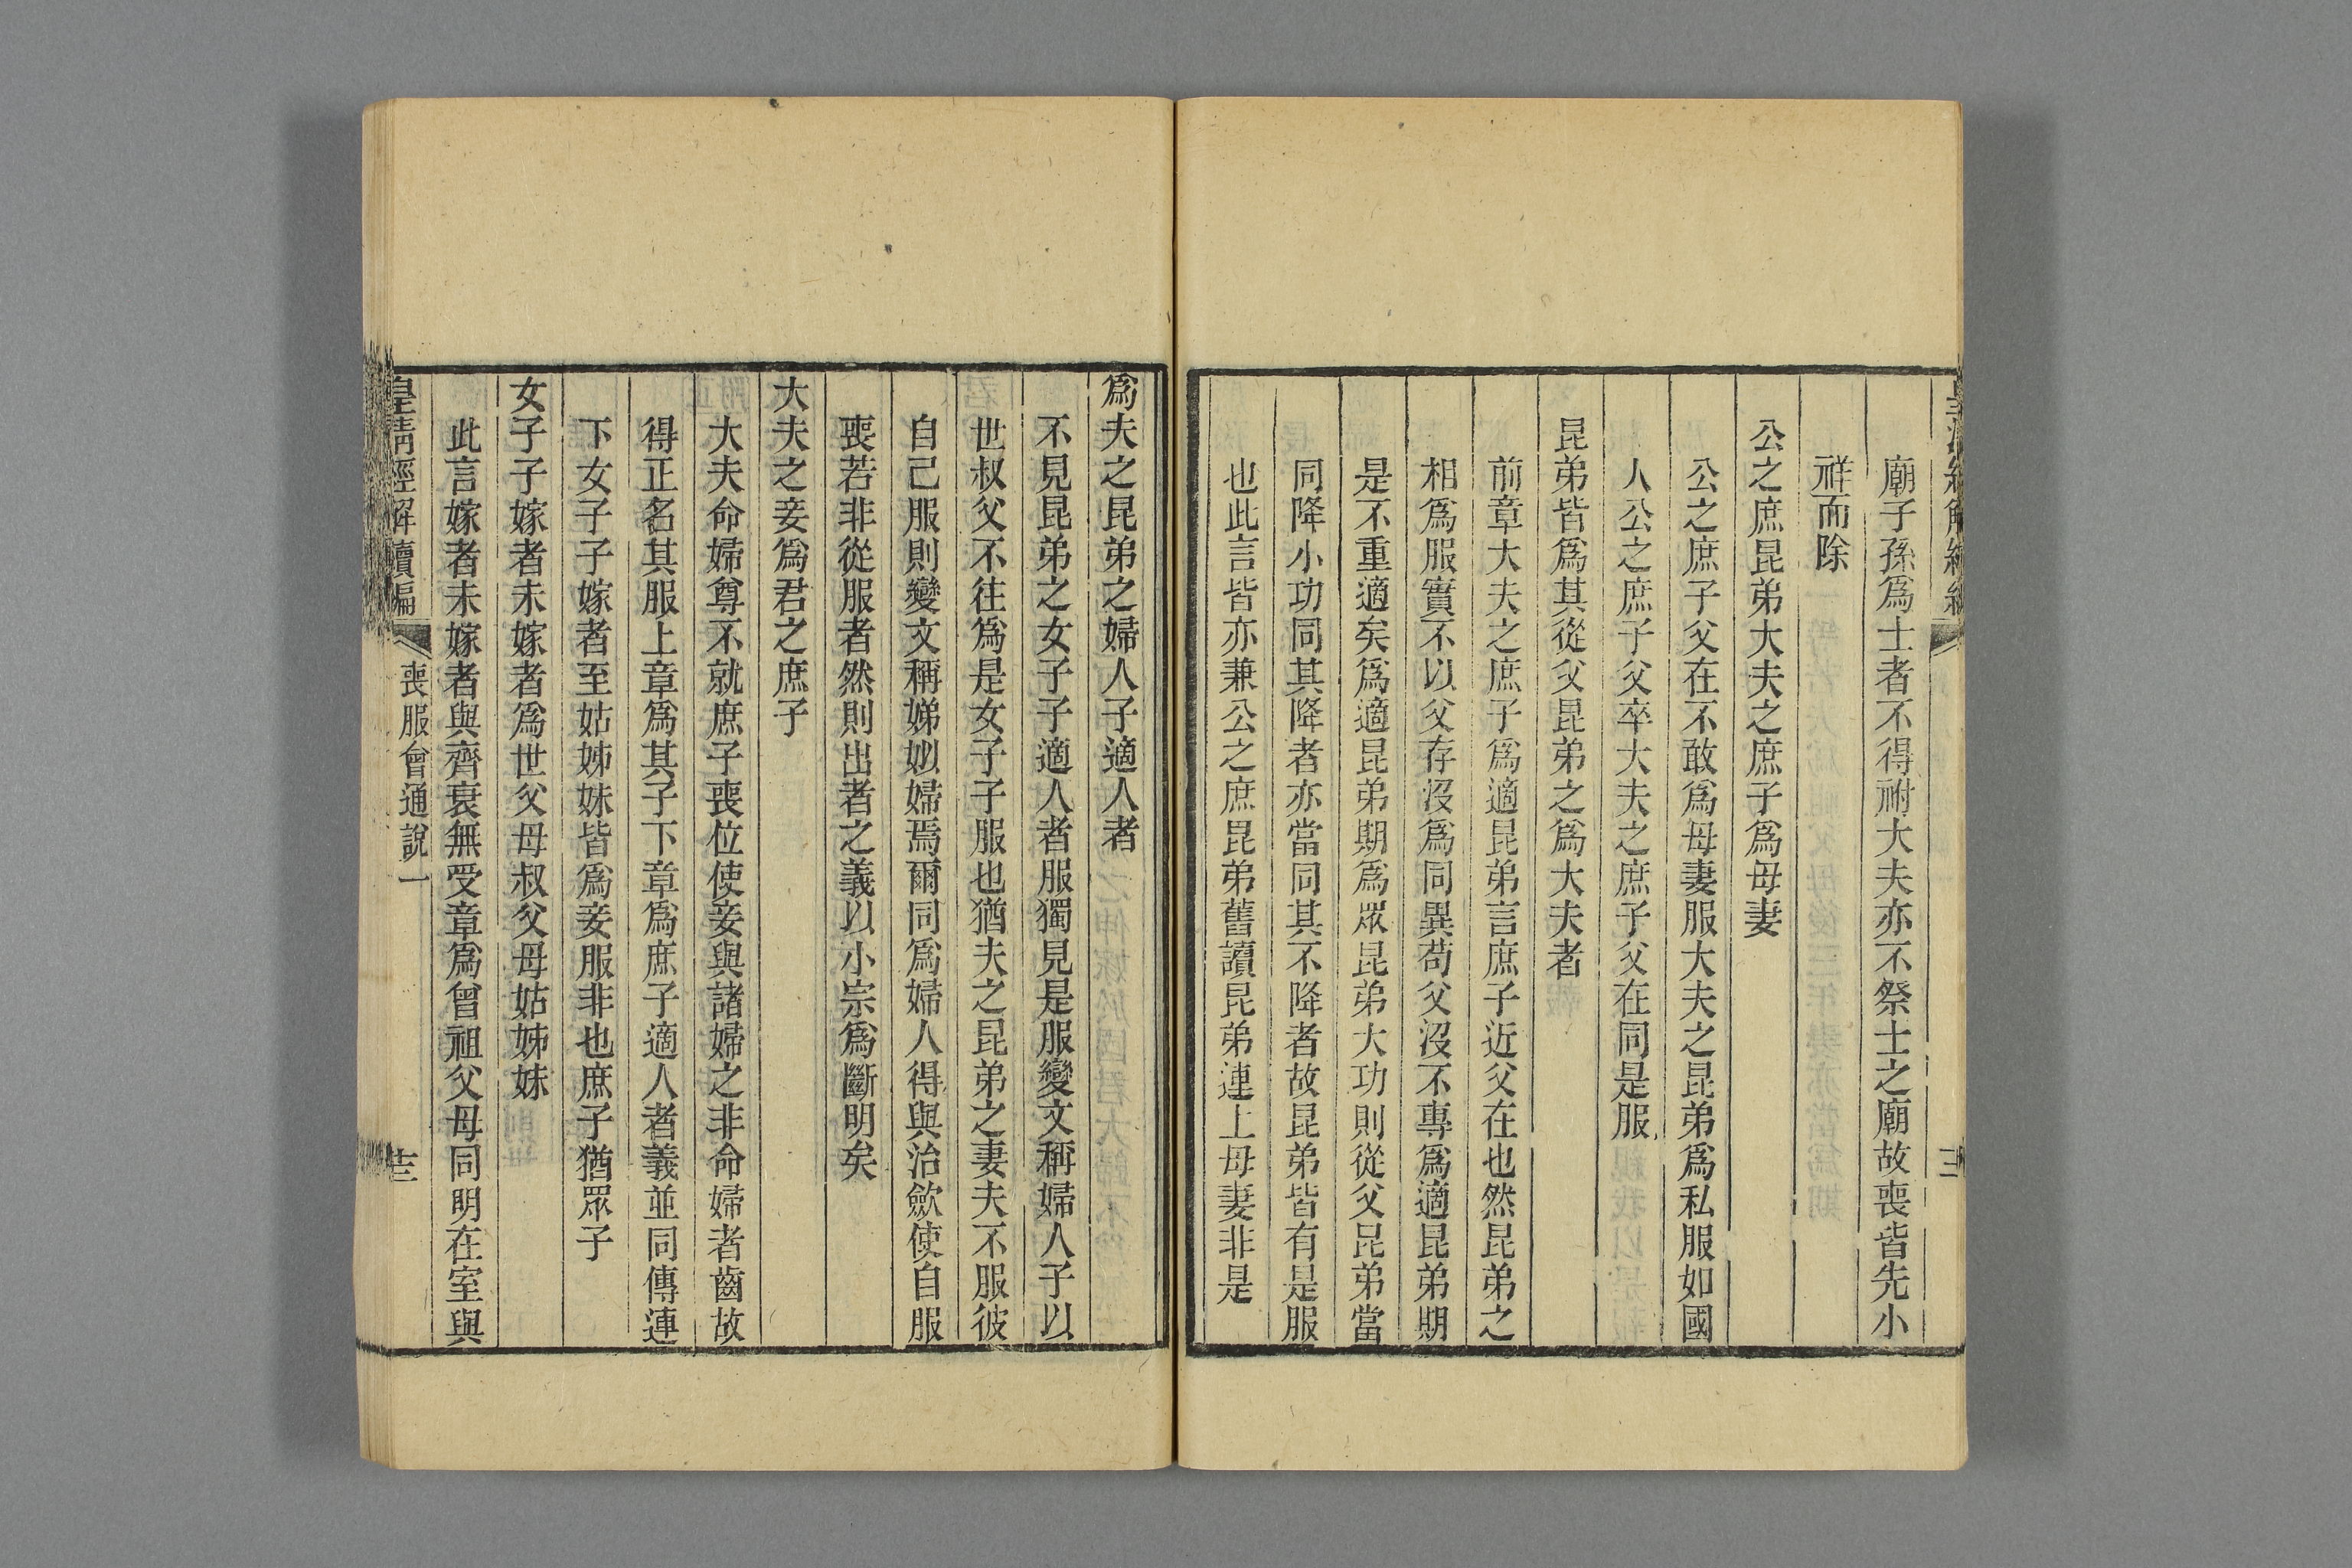 廟子孫爲士者不得祔大夫亦不祭士之廟故喪皆先小
祥而除
公之庶昆弟大夫之庶子爲母妻
公之庶子父在不敢爲母妻服大夫之昆弟爲私服如國
人公之庶子父卒大夫之庶子父在同是服
昆弟皆爲其從父昆弟之爲大夫者
前章大夫之庶子爲適昆弟言庶子近父在也然昆弟之
相爲服實不以父存沒爲同異苟父沒不專爲適昆弟期
是不重適矣爲適昆弟期爲眾昆弟大功則從父昆弟當
同降小功同其降者亦當同其不降者故昆弟皆有是服
也此言皆亦兼公之庶昆弟舊讀昆弟連上母妻非是
爲夫之昆弟之婦人子適人者
不見昆弟之女子子適人者服獨見是服變文稱婦人子以
世叔父不往爲是女子子服也猶夫之昆弟之妻夫不服彼
自己服則變文稱娣姒婦焉爾同爲婦人得與治斂使自服
喪若非從服者然則出者之義以小宗爲斷明矣
大夫之妾爲君之庶子
大夫命婦尊不就庶子喪位使妾與諸婦之非命婦者齒故
得正名其服上章爲其子下章爲庶子適人者義並同傳連
下女子子嫁者至姑姊妹皆爲妾服非也庶子猶眾子
女子子嫁者未嫁者爲世父母叔父母姑姊妹
此言嫁者未嫁者與齊衰無受章爲曾祖父母同明在室與
皇清經解續編
喪服會通說一